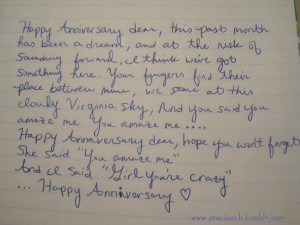 Happy Anniversary dear, this past month
has been a dream, and at the risk of
sounding forward, I think we've got
something here. Your fingers find their
place between mine, we stare at this
cloudy Virginia sky, And you said you
amaze me You amaze me....
Happy Anniversary dear, hope you won't forget
She said "You amaze me"
And I said, "Girl You're crazy"
... Happy Anniversary ♡